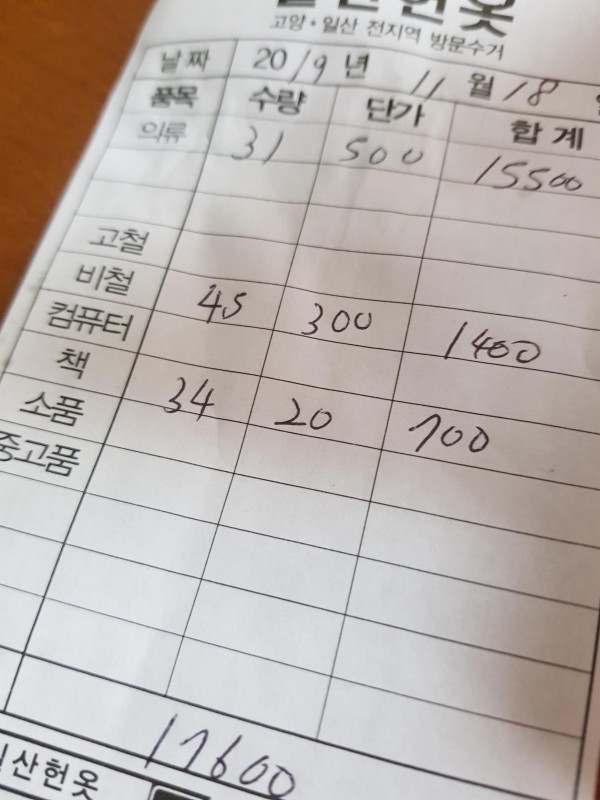 일산헌옷
고양·일산 전지역 방문수거
날짜 2019년 11월 18
품목 수량 단가 합계
의류 31 500 15500
고철
비철 45 300 1400
컴퓨터
책 34 20 700
소품
중고품
17600
일산헌옷